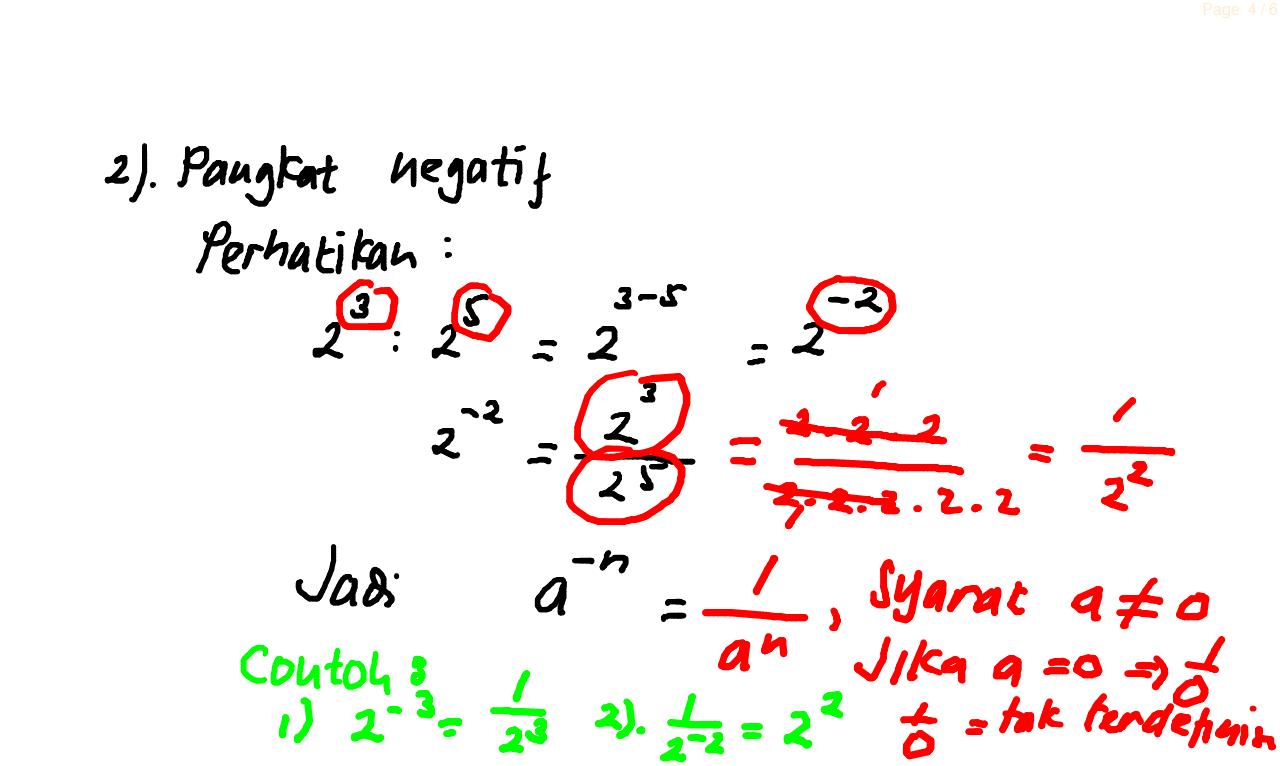 Page 4 / 6
2). Pangkat negatif
Perhatikan :
2^3 : 2^5 = 2^{3-5} = 2^{-2}
2^{-2} = 2^3/2^5 = 2 . 2 . 2/2 . 2 . 2 . 2 . 2 = 1/2^2
Jadi a^{-n} = 1/a^n , Syarat a ≠ 0
Jika a = 0 ⇒ 1/0
Contoh :
1) 2^{-3} = 1/2^3 2). 1/2^{-2} = 2^2 1/0 = tak terdefinisi